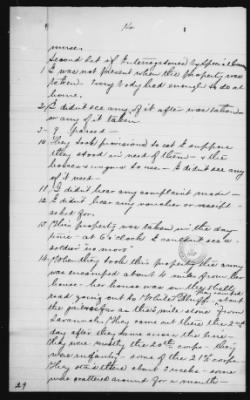 mine.
Second Set of Interrogatories by Special Com
1 I was not present when this property was
taken. Every body had enough to do at
home.
2 I didn't see any of it after was taken
or any of it taken
3- 9 passed -
10 They took provisions to eat I suppose
they stood in need of them & the
horses & wagon to use - I didn't see any
of it used -
11 I didn't hear any complaint made -
12 I didn't hear any voucher or receipt
asked for.
13 This property was taken in the day
time - at 6 o'clock I couldn't see a
soldier no more.
14 When they took this property the army
was encamped about 4 miles from the
house - her house was on the Shell
road going out to White Bluff about
a mile & a half from
Savannah. They came out there the 2nd
day after they came across the line -
they was mostly the 20th corps. They
was infantry - some of the 21st corps.
They staid there about 3 weeks - some
was scattered around for a month -
29